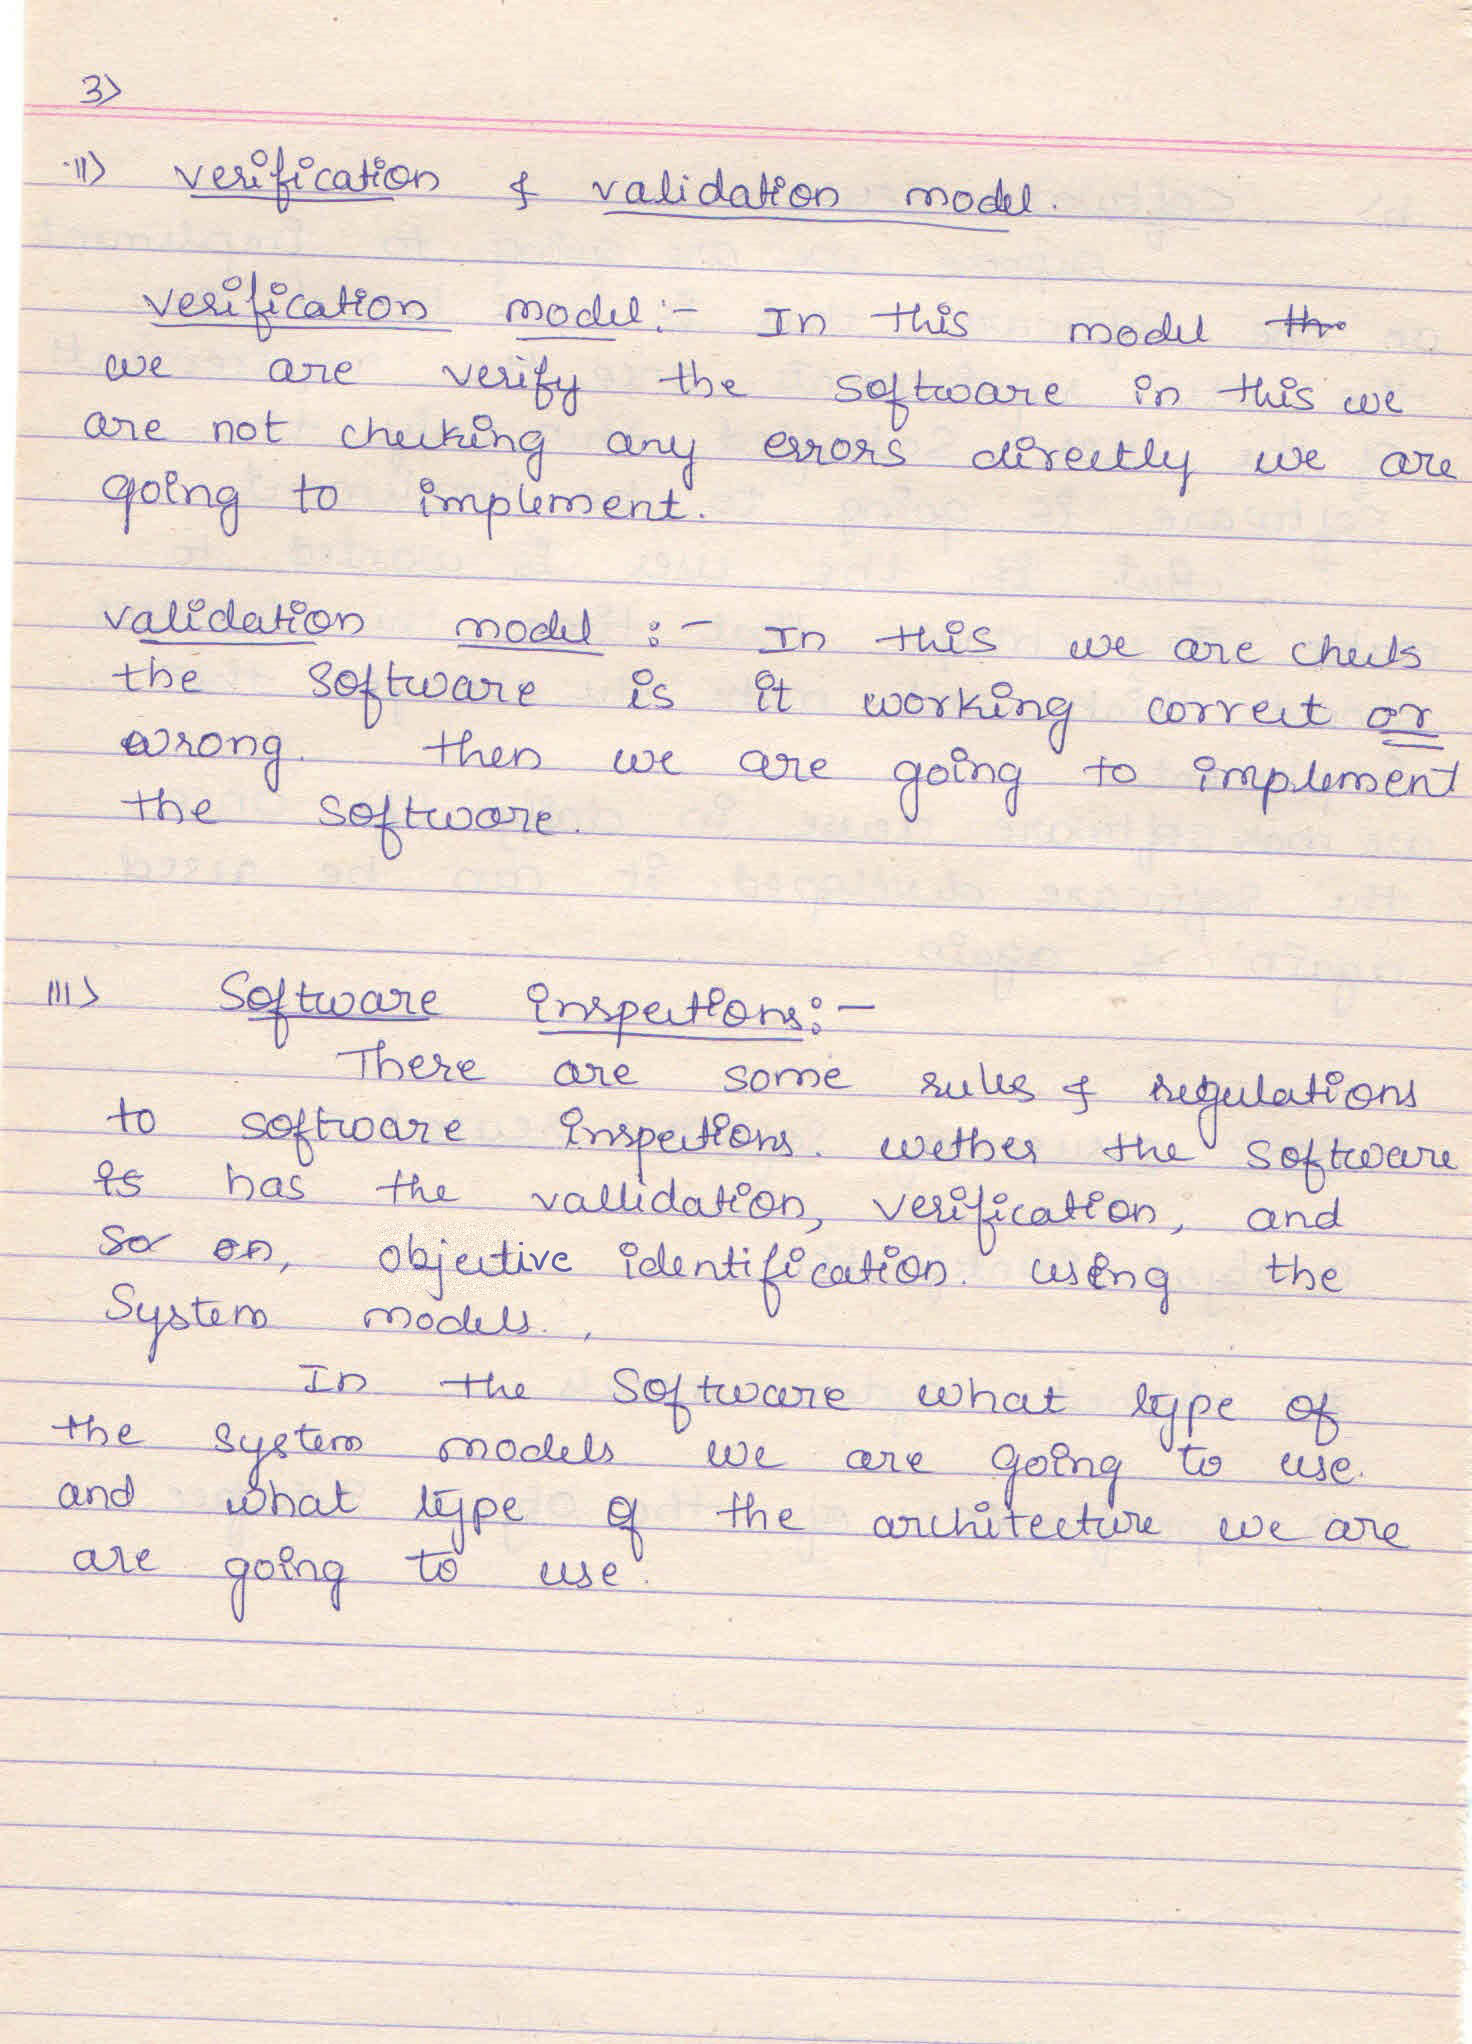 3>
ii> verification & validation model.
verification model:- In this model
we are verify the software in this we
are not checking any errors directly we are
going to implement.
validation model :- In this we are check
the software is it working correct or
wrong. then we are going to implement
the software.
III> Software inspections:-
There are some rules & regulations
to software inspections. wether the software
is has the vallidation, verification, and
so on, objective identification. using the
System models.,
In the Software what type of
the system models we are going to use.
and what type of the architecture we are
are going to use.